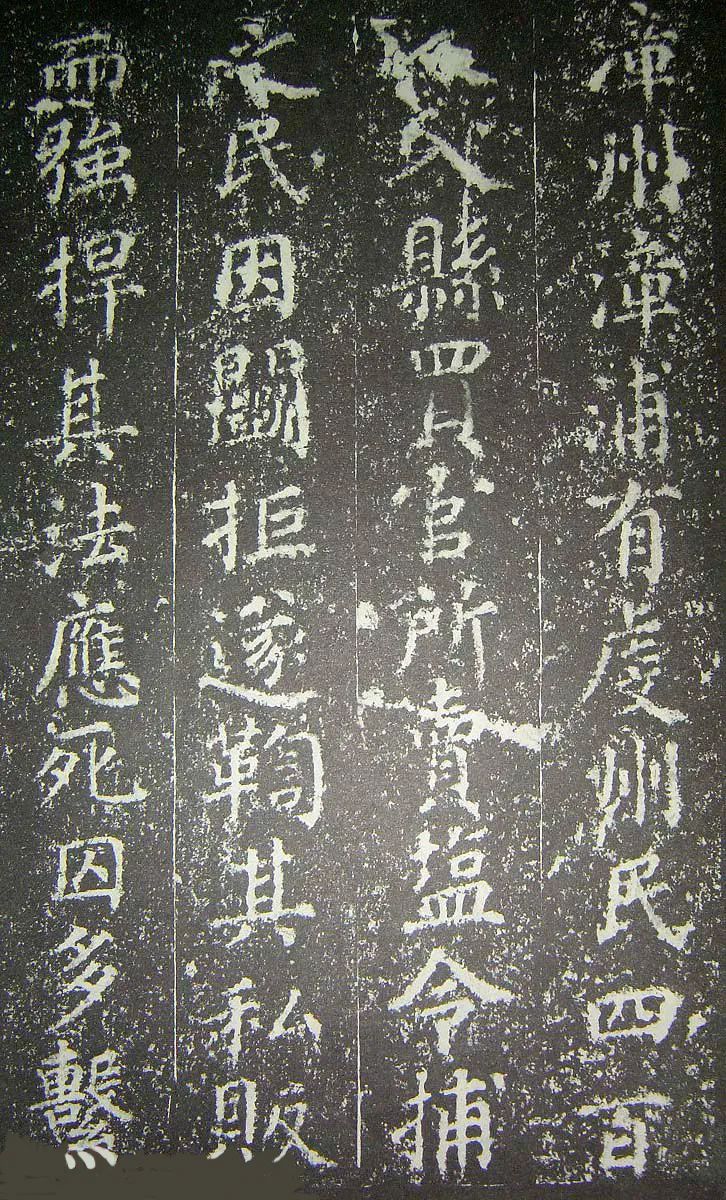 漳州漳浦有虔州民四百
入縣買官所賣塩令捕
之民因鬬拒遂鞫其私販
而強捍其法應死囚多繫